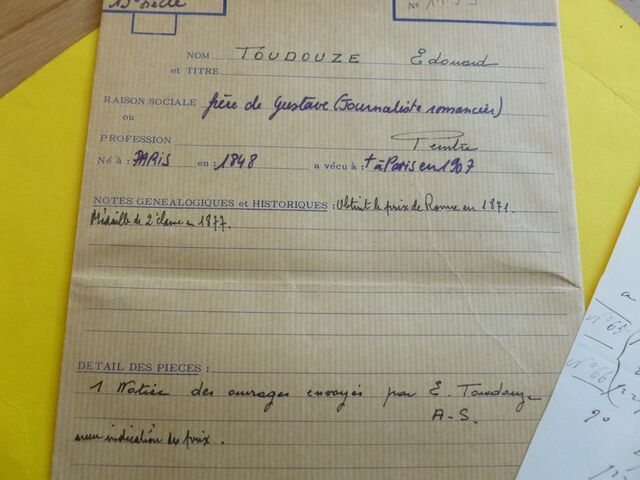 19e siècle
No 1133
NOM TOUDOUZE Edouard
et TITRE
RAISON SOCIALE frère de Gustave (Journaliste romancier)
ou
PROFESSION Peintre
Né à : PARIS en : 1848 a vécu à : + à Paris en 1907
NOTES GENEALOGIQUES et HISTORIQUES : Obtint le prix de Rome en 1871.
Médaille de 2e classe en 1877.
DETAIL DES PIECES :
1 Notice des ouvrages envoyés par E. Toudouze
A-S.
avec indication de prix.
a
n° 65
n° 66